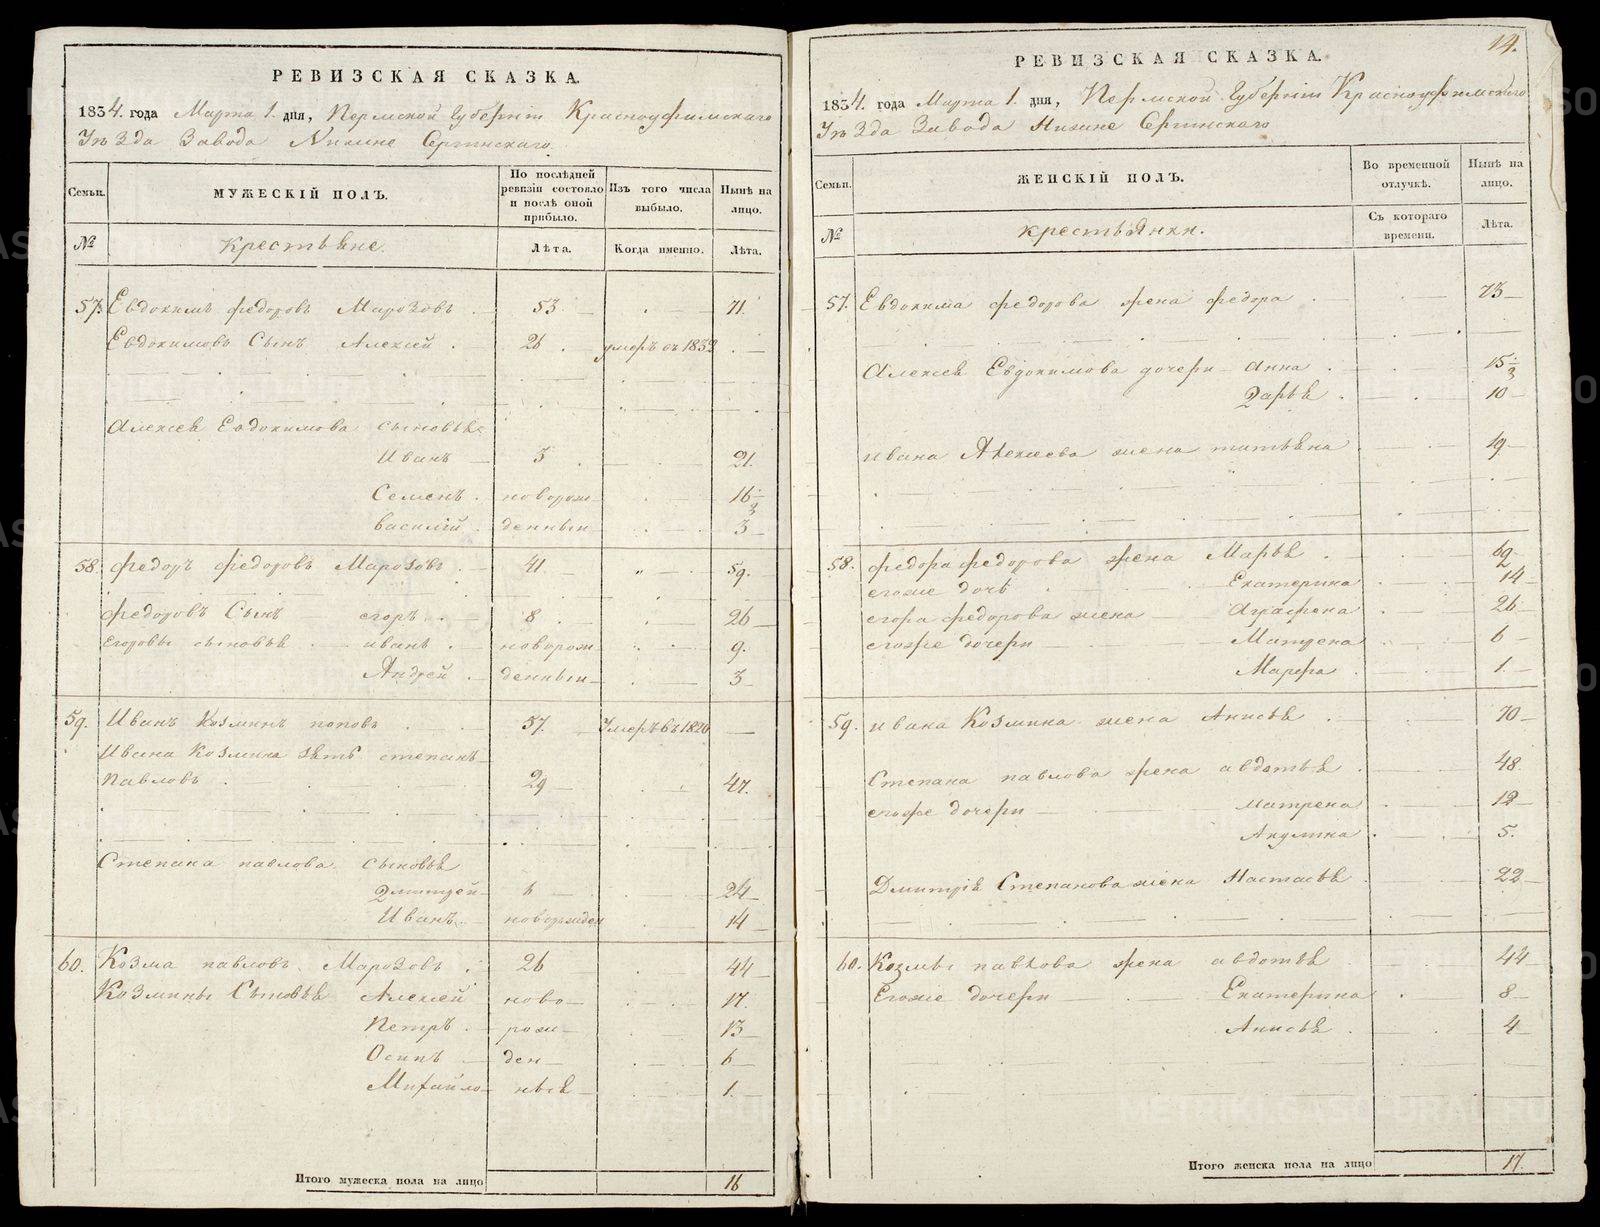 РЕВИЗСКАЯ СКАЗКА.
1834. года Марта 1. дня, Пермской Губернiи Красноуфимскаго
Уѣзда Завода Нижне Сергинскаго
Семьи.
МУЖЕСКIЙ ПОЛЪ.
По послѣдней ревизiи состояло и послѣ оной прибыло.
Изъ того числа выбыло.
Нынѣ на лицо.
№
Крестьяне.
Лѣта.
Когда именно.
Лѣта.
57. Евдокимъ федоровъ Марозовъ 53 71.
Евдокимовъ Сынъ Алексѣй 26 умеръ въ 1832
Алексѣя Евдокимова сыновья
Иванъ 3 21.
Семенъ новорож 16 1/3
Василiй денныи 3
58. федоръ федоровъ Марозовъ 41 59.
федоровъ Сынъ егоръ 8 26
егоровы сыновья иванъ новорож 9.
Андрей денныи 3
59. Иванъ Козминъ поповъ 57. Умеръ въ 1826
Ивана Козмина зять степанъ
Павловъ 29 47.
Степана павлова сыновья
Дмитрей 6 24
Иванъ новорожден 14
60. Козма павловъ Марозовъ 26 44
Козмины Сыновья Алексѣй ново 17
Петръ рож 13
Осипъ ден 6
Михайло ныя 1.
Итого мужеска пола на лицо 16
14.
РЕВИЗСКАЯ СКАЗКА.
1834. года Марта 1. дня, Пермской Губернiи Красноуфимскаго
Уѣзда Завода Нижне Сергинскаго
Семьи.
ЖЕНСКIЙ ПОЛЪ.
Во временной отлучкѣ.
Нынѣ на лицо.
№
крестьянки.
Съ котораго времени.
Лѣта.
57. Евдокима федорова жена федора 73
Алексѣя Евдокимова дочери Анна 15 1/3
Дарья 10
ивана Алексѣева жена татьяна 19
58. федора федорова жена Марья 62
егоже дочь Екатерина 14
егора федорова жена Аграфена 26
егоже дочери Матрена 6
Марфа 1.
59. ивана Козмина жена Анисья 70
Степана павлова жена авдотья 48
егоже дочери матрена 12
Акулина 5.
Дмитрiя Степанова жена Настасья 22
60. Козмы павлова жена авдотья 44
Егоже дочери Екатерина 8
Анисья 4
Итого женска пола на лицо 17.
METRIKI.GASO-URAL.RU